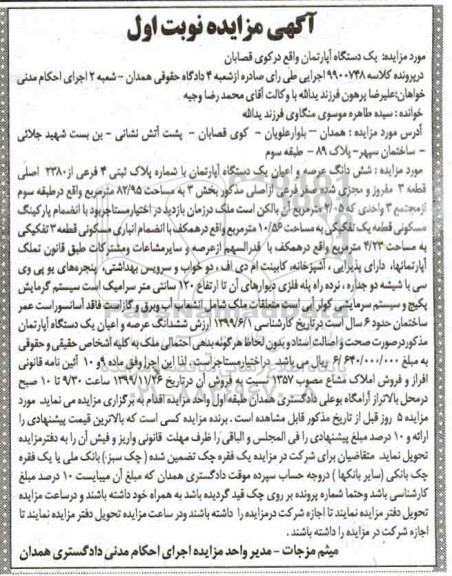 آگهی مزایده نوبت اول
مورد مزایده: یک دستگاه آپارتمان واقع در کوی قصابان
در پرونده کلاسه ۹۹۰۰۷۴۸ اجرایی طی رای صادره از شعبه ۴ دادگاه حقوقی همدان – شعبه ۲ اجرای احکام مدنی
خواهان: علیرضا پرهون فرزند یدالله با وکالت آقای محمد رضا وجیه
خوانده: سیده طاهره موسوی منگاوی فرزند یدالله
آدرس مورد مزایده: همدان – بلوار علویان – کوی قصابان – پشت آتش نشانی – بن بست شهید جلائی
– ساختمان سپهر – پلاک ۸۹ – طبقه سوم
مورد مزایده: شش دانگ عرصه و اعیان یک دستگاه آپارتمان با شماره پلاک ثبتی ۴ فرعی از ۲۳۸۰ اصلی
قطعه ۳ مفروز و مجزی شده صفر فرعی از اصلی مذکور بخش ۳ به مساحت ۸۲/۹۵ مترمربع واقع در طبقه سوم
از مجتمع ۳ واحدی که ۲/۰۵ مترمربع آن بالکن است ملک در زمان بازدید در اختیار مستاجر بود با انضمام پارکینگ
مسکونی قطعه یک تفکیکی به مساحت ۱۰/۵۶ مترمربع واقع در همکف با انضمام انباری مسکونی قطعه ۳ تفکیکی
به مساحت ۴/۲۳ مترمربع واقع در همکف با قدرالسهم از عرصه و سایر مشاعات و مشترکات طبق قانون تملک
آپارتمانها، دارای پذیرایی، آشپزخانه، کابینت ام دی اف، دو خواب و سرویس بهداشتی، پنجره‌های یو پی وی
سی با شیشه دو جداره، نرده راه پله فلزی دیوارهای آن تا ارتفاع ۱۲۰ سانتی متر سرامیک است سیستم گرمایش
پکیج و سیستم سرمایشی کولر آبی است متعلقات ملک شامل انشعاب آب و برق و گاز است فاقد آسانسور است عمر
ساختمان حدود ۶ سال است در تاریخ کارشناسی ۱۳۹۹/۶/۱ ارزش ششدانگ عرصه و اعیان یک دستگاه آپارتمان
مذکور در صورت صحت و اصالت اسناد و بدون لحاظ هرگونه بدهی احتمالی ملک به کلیه اشخاص حقیقی و حقوقی
به مبلغ ۶/۶۴۰/۰۰۰/۰۰۰ ریال می باشد. در اختیار مستاجر است. لذا این اجرا وفق ماده ۹ و ۱۰ آئین نامه قانونی
افراز و فروش املاک مشاع مصوب ۱۳۵۷ نسبت به فروش آن در تاریخ ۱۳۹۹/۱۱/۲۶ ساعت ۹/۳۰ تا ۱۰ صبح
در محل بالاتر از آرامگاه بوعلی دادگستری همدان طبقه اول واحد مزایده اقدام به برگزاری مزایده می نماید. مورد
مزایده ۵ روز قبل از تاریخ مذکور قابل مشاهده است. برنده مزایده کسی است که بالاترین قیمت پیشنهادی را
ارائه و ۱۰ درصد مبلغ پیشنهادی را فی المجلس و الباقی را ظرف مهلت قانونی واریز و فیش آن را به دفتر مزایده
تحویل نماید. متقاضیان برای شرکت در مزایده یک فقره چک تضمین شده (چک سبز) بانک ملی یا یک فقره
چک بانکی (سایر بانکها) در وجه حساب سپرده موقت دادگستری همدان که مبلغ آن میبایست ۱۰ درصد مبلغ
کارشناسی باشد و حتما شماره پرونده بر روی چک قید گردیده باشد به همراه خود داشته باشند و در ساعت مزایده
تحویل دفتر مزایده نمایند تا اجازه شرکت در مزایده را داشته باشند و در ساعت مزایده تحویل دفتر مزایده نمایند تا
اجازه شرکت در مزایده را داشته باشند.
میثم مزجات – مدیر واحد مزایده اجرای احکام مدنی دادگستری همدان